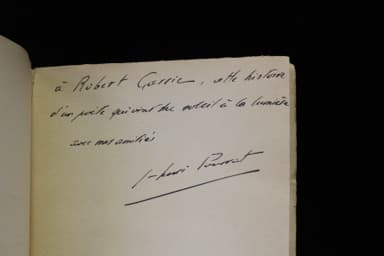 à Robert Garric, cette histoire
d'un poète qui vint du soleil à la lumière
avec mes amitiés
Henri Pourrat